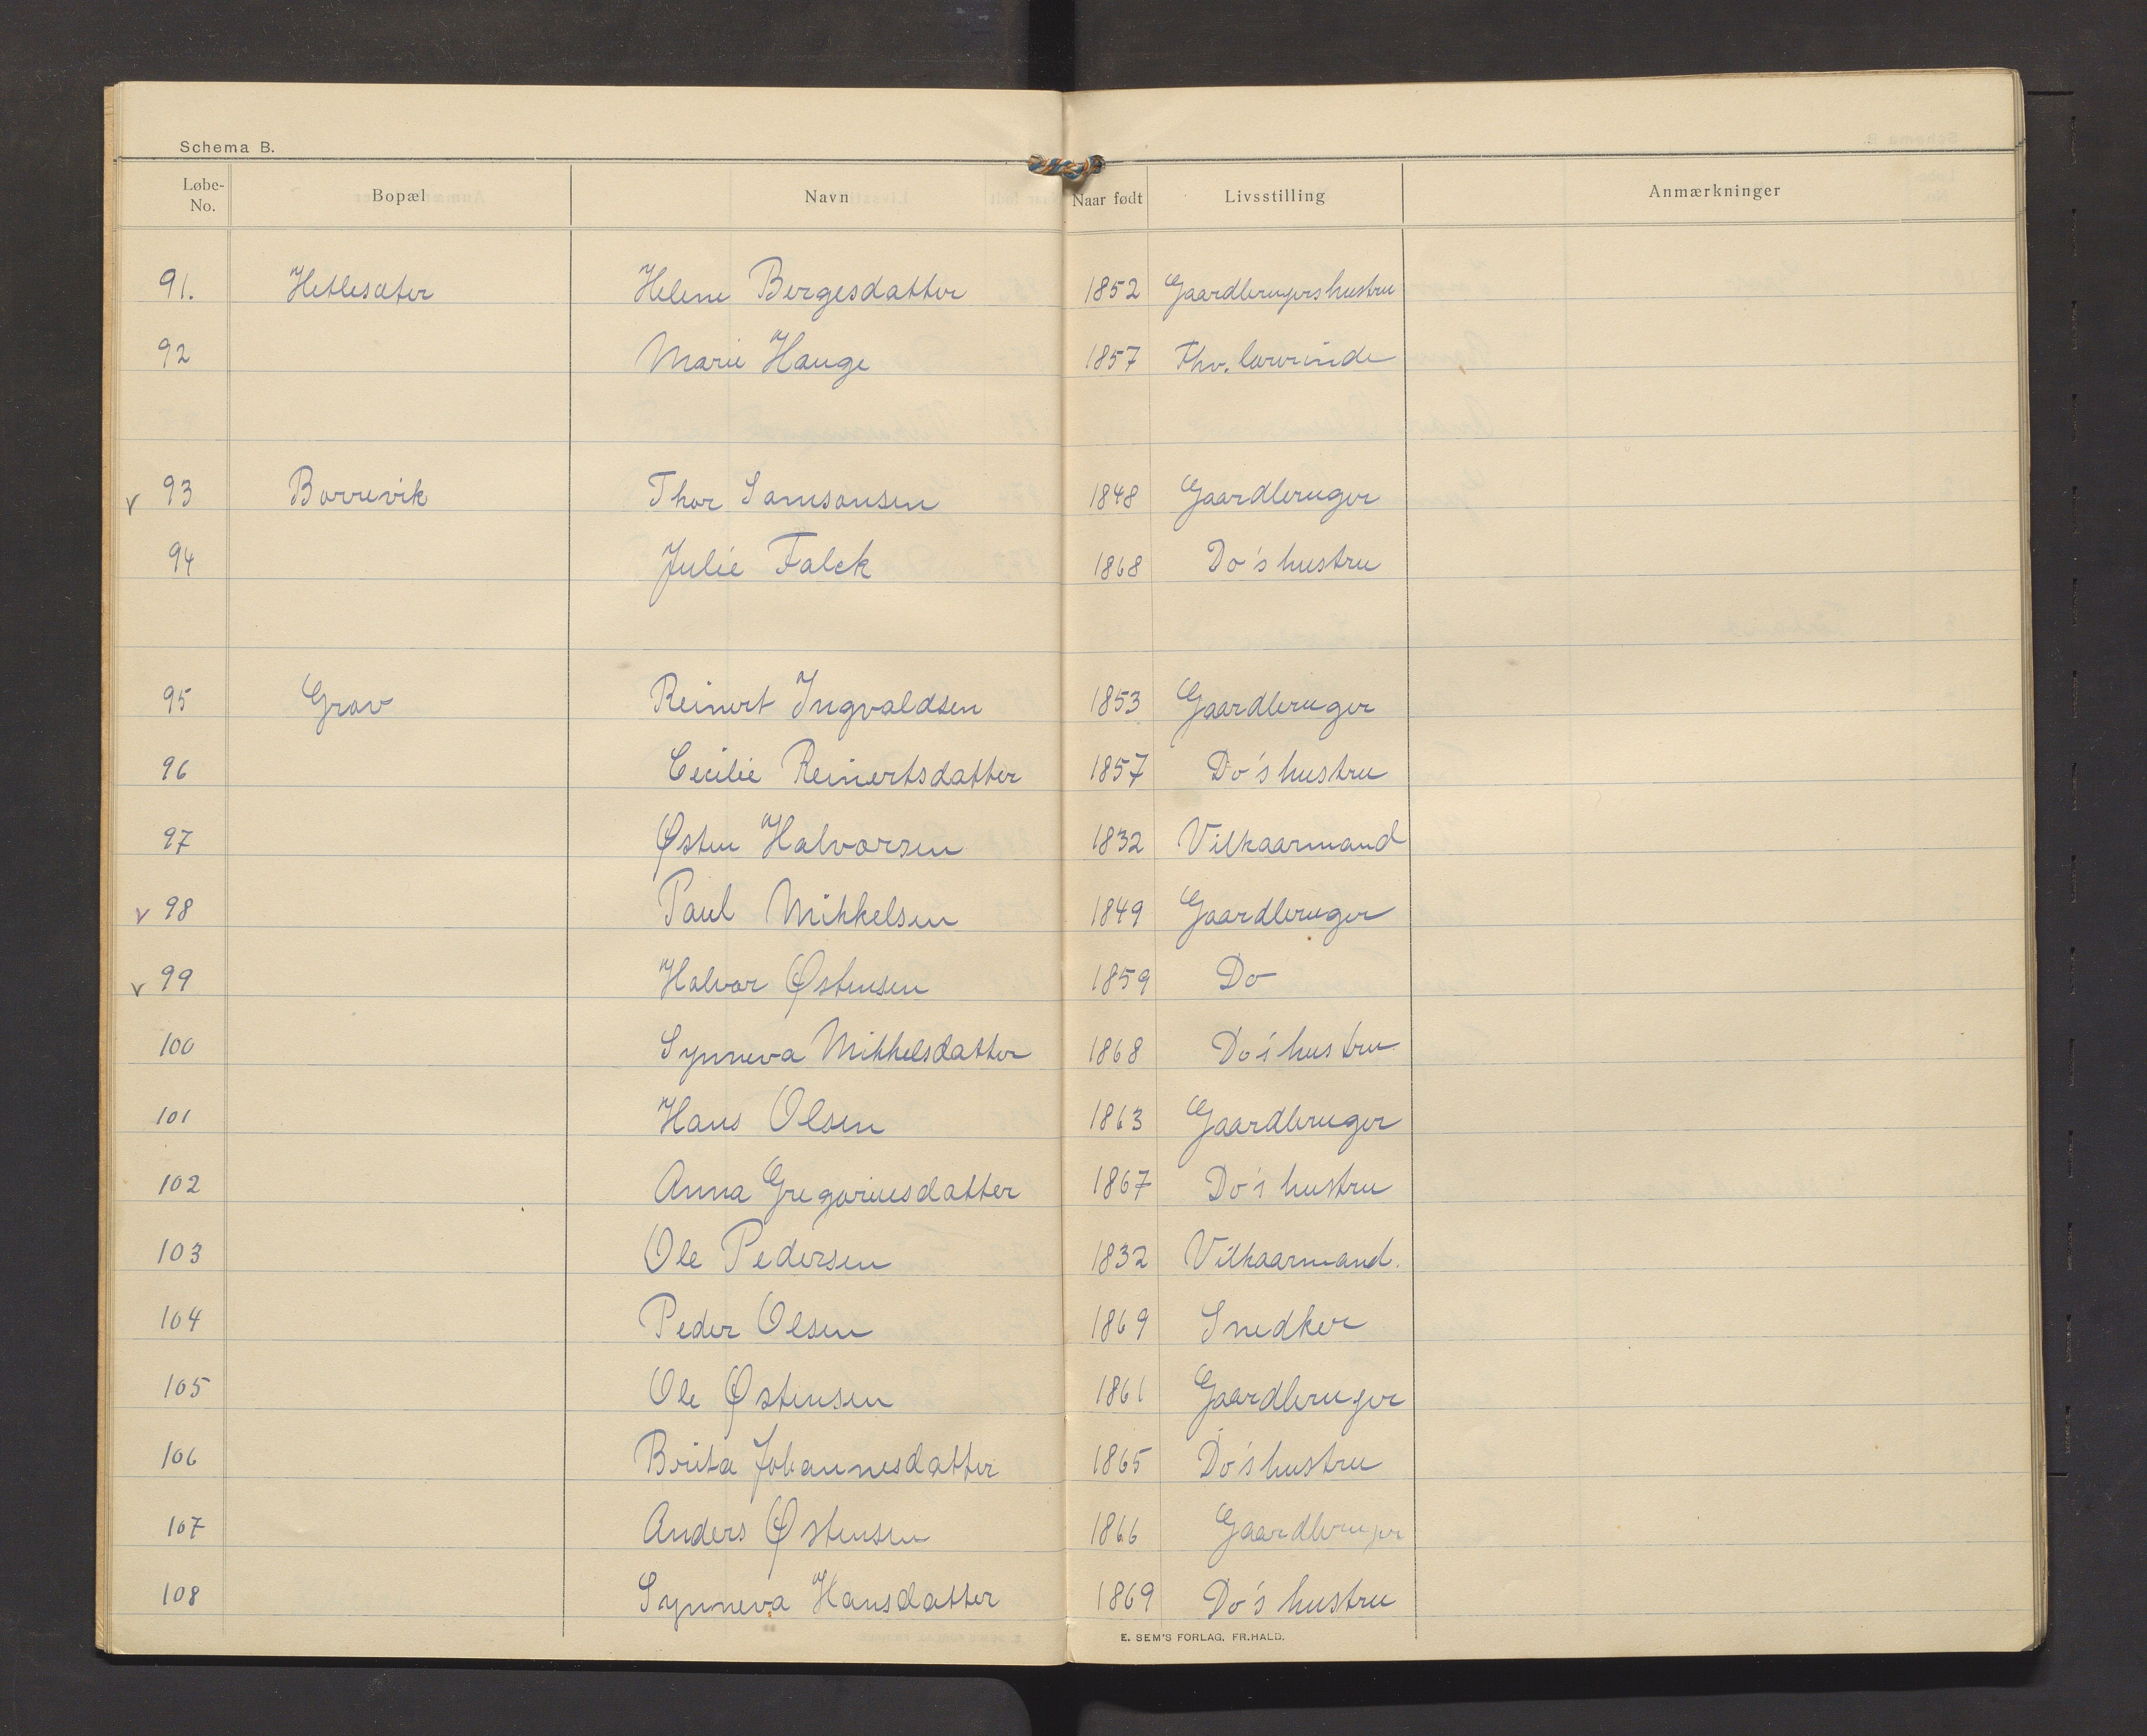 Schema B.
Løbe-No. Bopæl Navn Naar født Livsstilling Anmærkninger
91. Hetlesæter Helene Bergesdatter 1852 Gaardbrugers hustru
92 Marie Hauge 1857 Fhv. lærerinde
v 93 Borrevik Thor Samsonsen 1848 Gaardbruger
94 Julie Falck 1868 Do's hustru
95 Grov Reinert Ingvaldsen 1853 Gaardbruger
96 Cecilie Reinertsdatter 1857 Do's hustru
97 Østen Halvorsen 1832 Vilkaarmand
v 98 Paul Mikkelsen 1849 Gaardbruger
v 99 Halvor Østensen 1859 Do
100 Synneva Mikkelsdatter 1868 Do's hustru
101 Hans Olsen 1863 Gaardbruger
102 Anna Gregoriusdatter 1867 Do's hustru
103 Ole Pedersen 1832 Vilkaarmand.
104 Peder Olsen 1869 Snedker
105 Ole Østensen 1861 Gaardbruger
106 Brita Johannesdatter 1865 Do's hustru
107 Anders Østensen 1866 Gaardbruger
108 Synneva Hansdatter 1869 Do's hustru
E. SEM'S FORLAG, FR.HALD.